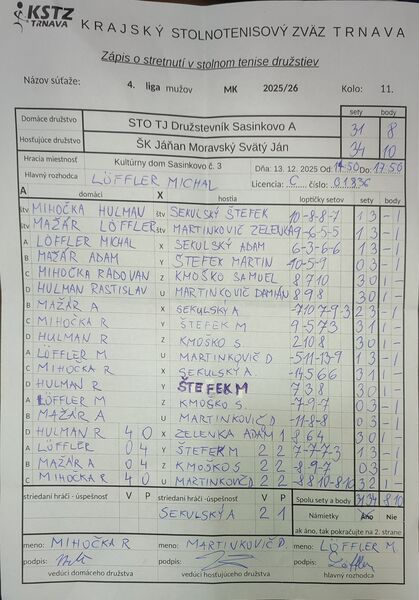 KSTZ TRNAVA KRAJSKÝ STOLNOTENISOVÝ ZVÄZ TRNAVA
Zápis o stretnutí v stolnom tenise družstiev
Názov súťaže: 4. liga mužov MK 2025/26 Kolo: 11.
sety body
Domáce družstvo STO TJ Družstevník Sasinkovo A 31 8
Hosťujúce družstvo ŠK Jáňan Moravský Svätý Ján 34 10
Hracia miestnosť Kultúrny dom Sasinkovo č. 3 Dňa 13. 12. 2025 Od Do 17.50
Hlavný rozhodca LÖFFLER MICHAL Licencia: C číslo: 01836
A domáci X hostia loptičky setov sety body
štv MIHOČKA HULMAN štv SEKULSKÝ ŠTEFEK 10 -8 -8 -7 1 3 - 1
štv MAŽÁR LÖFFLER štv MARTINKOVIČ ZELENKA 9 -6 -5 -5 1 3 - 1
A LÖFFLER MICHAL X SEKULSKÝ ADAM 6 -3 -6 -6 1 3 - 1
B MAŽÁR ADAM Y ŠTEFEK MARTIN 0 3 - 1
C MIHOČKA RADOVAN Z KMOŠKO SAMUEL 8 7 10 3 0 1 -
D HULMAN RASTISLAV U MARTINKOVIČ DAMIÁN 8 9 8 3 0 1 -
B MAŽÁR A X SEKULSKÝ A 2 3 - 1
C MIHOČKA R Y ŠTEFEK M 3 1 1 -
D HULMAN R Z KMOŠKO S 2 10 8 3 0 1 -
A LÖFFLER M U MARTINKOVIČ D -5 11 -13 -9 1 3 - 1
C MIHOČKA R X SEKULSKÝ A 3 1 1 -
D HULMAN R Y ŠTEFEK M 7 3 8 3 0 1 -
A LÖFFLER M Z KMOŠKO S -7 -9 -7 0 3 - 1
B MAŽÁR A U MARTINKOVIČ D -11 -8 -8 0 3 - 1
D HULMAN R 4 0 X ZELENKA ADAM 8 6 4 3 0 1 -
A LÖFFLER 0 4 Y ŠTEFEK M 2 2 1 3 - 1
B MAŽÁR A 0 4 Z KMOŠKO S 2 2 -8 -9 -7 0 3 - 1
C MIHOČKA R 4 0 U MARTINKOVIČ D 2 2 3 2 1 -
striedaní hráči -úspešnosť V P striedaní hráči -úspešnosť V P Spolu sety a body 31 34 8 10
SEKULSKÝ A 2 1 Námietky Áno Nie
ak áno, tak pokračujte na 2. strane
meno: MIHOČKA R meno: MARTINKOVIČ D. meno: LÖFFLER M
podpis: podpis: podpis: Löffler
vedúci domáceho družstva vedúci hosťujúceho družstva hlavný rozhodca